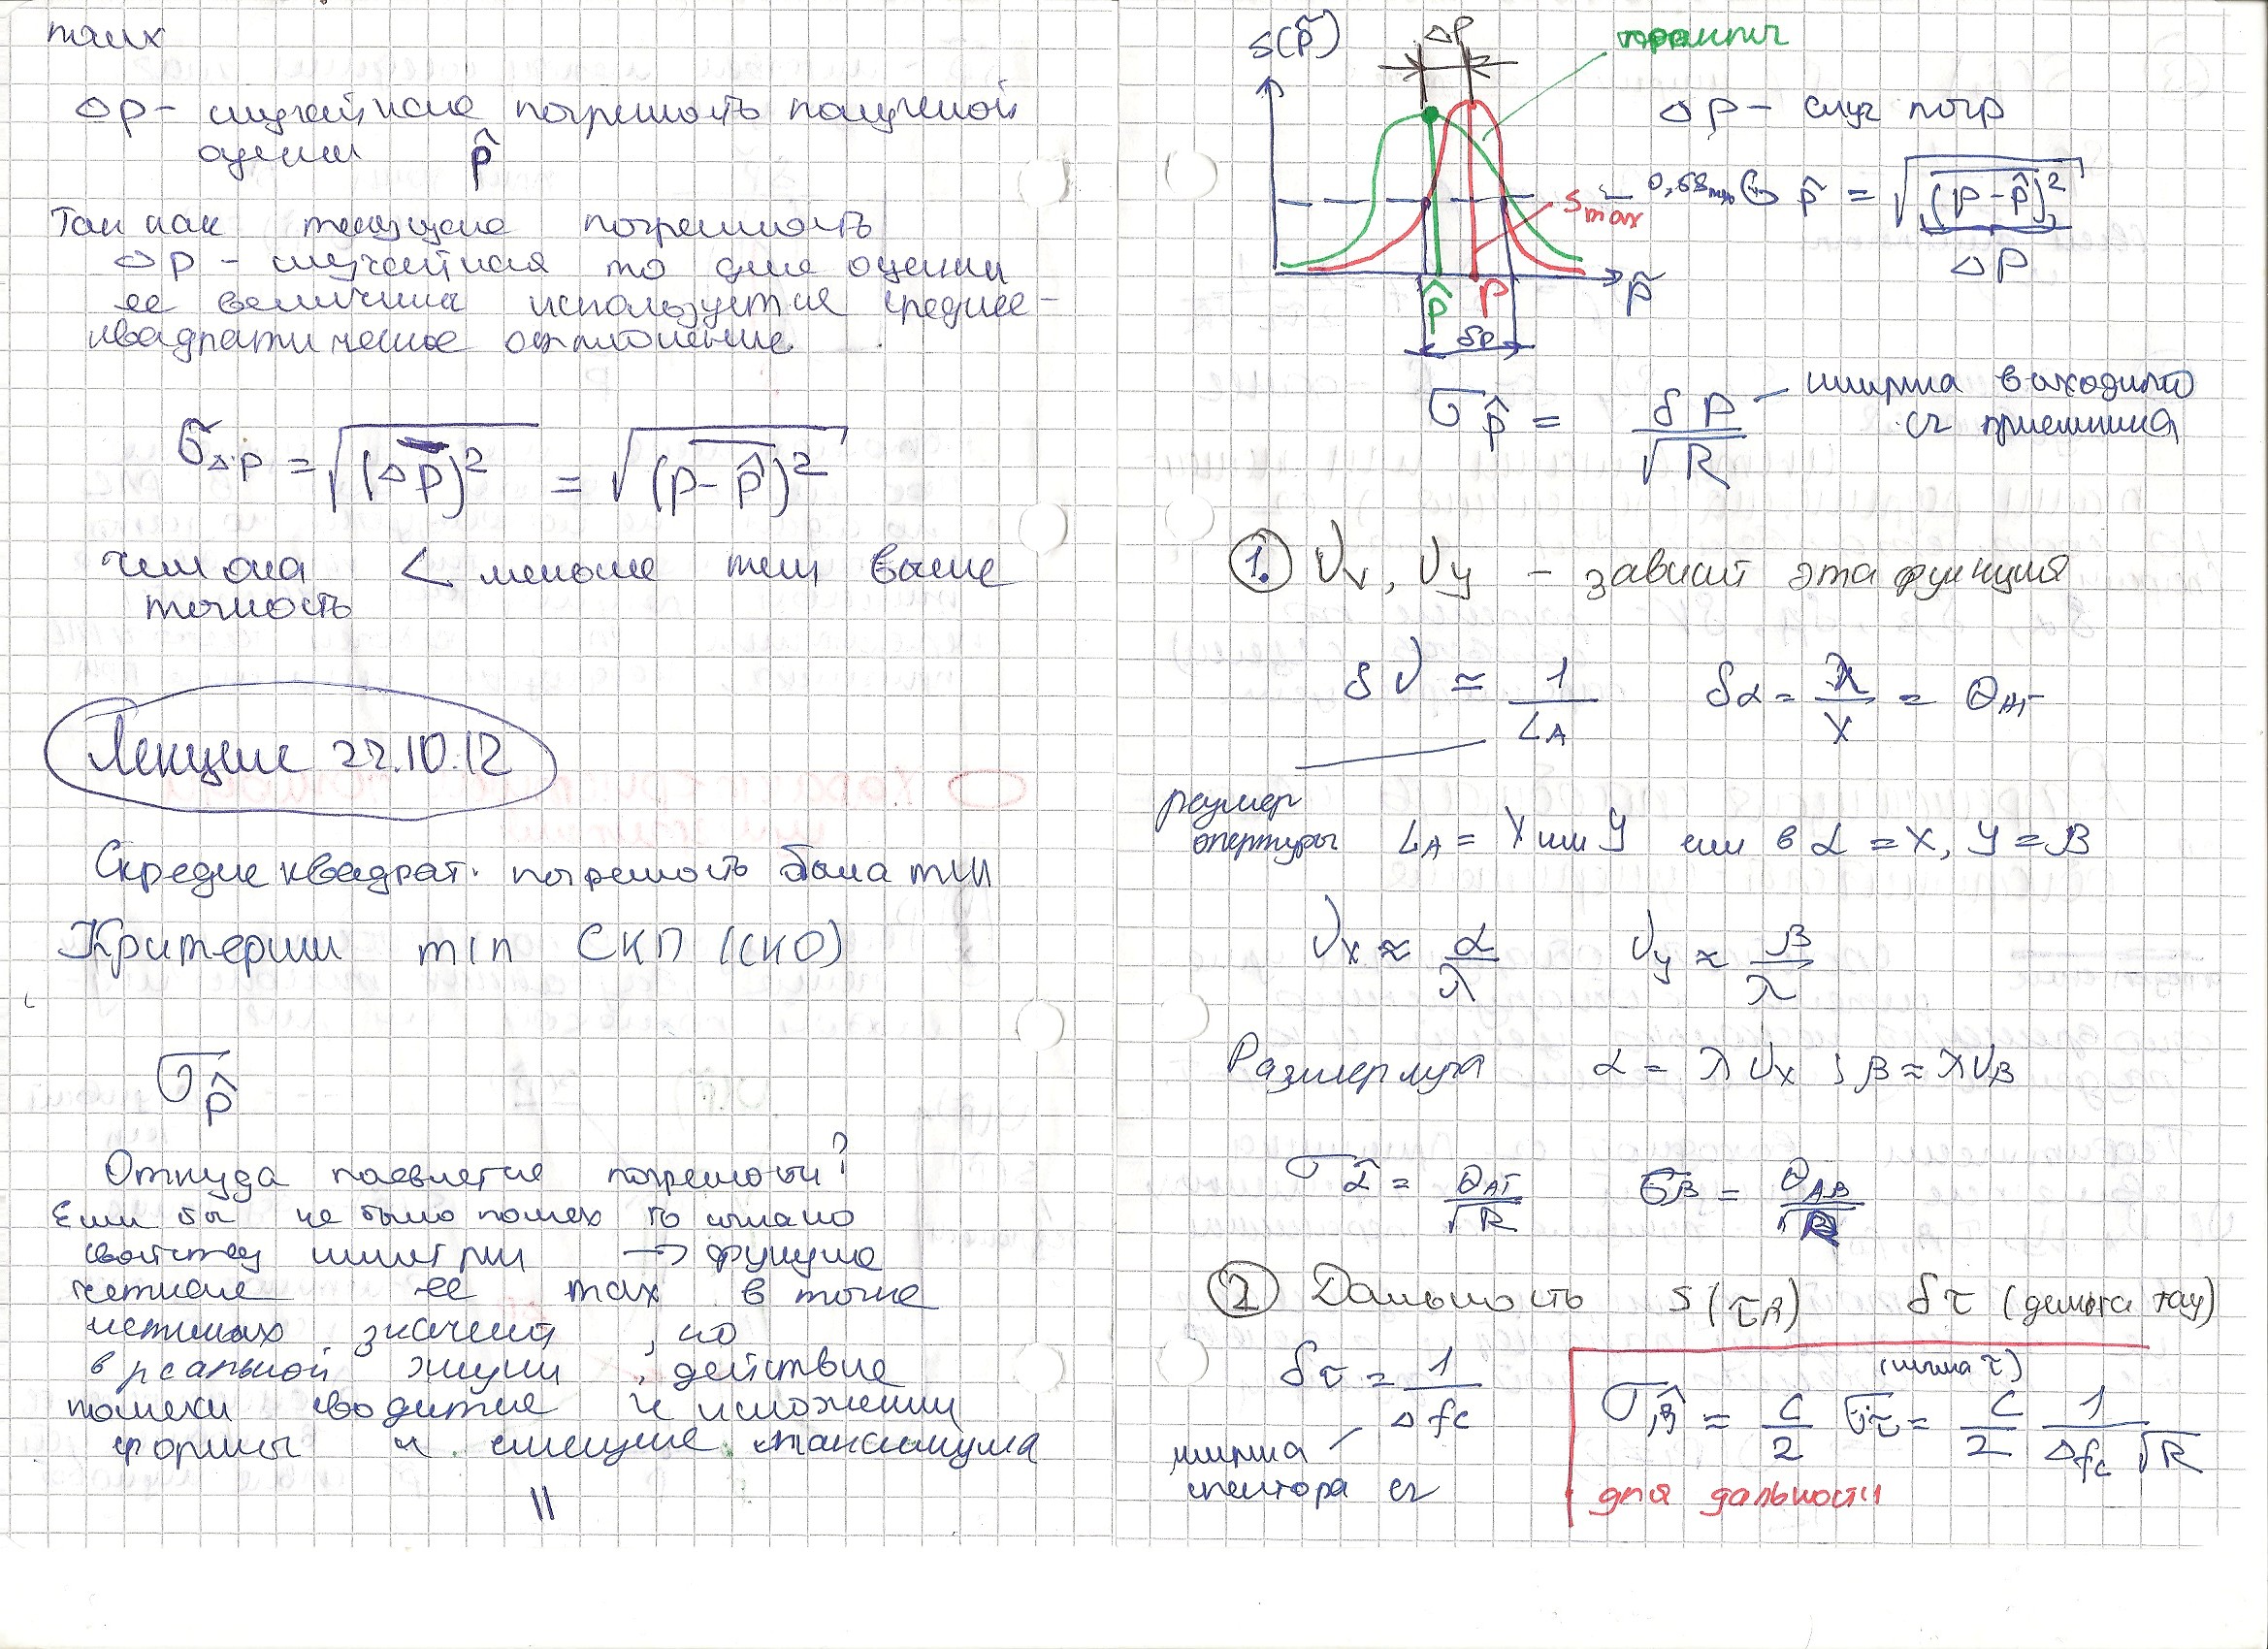 Δp – случайная погрешность полученой
оценки p̂
Так как текущая погрешность
Δp – случайная то для оценки
ее величина используется средне-
квадратическое отклонение.
σΔp = √(Δp)² = √(p-p̂)²
чем она < меньше тем выше
точность
Лекция 22.10.12
Скредне квадрат. погрешность была min
Критерии min СКП (СКО)
σp̂
Откуда появлятся погрешности?
Если бы не было помех то
свойству → функция
четная ее max в точке
истиных значений, но
в реальной жизни, действие
помехи сводится к искожении
формы и смещние максимума
||
S(p̃)
Δp
Δp – случ погр
S max
σ p̂ = √(p-p̂)²
Δp
p̂ p p̃
δp
σp̂ = δp / √R – ширина выходного
сг приемника
1. νx, νy – зависит эта функция
δν ≃ 1 / LA δα = λ / X = θАГ
размер
апертуры LA = X или Y или в α = X, Y = β
νx ≈ α / λ νy ≈ β / λ
Размер луча α = λνx ; β ≈ λνβ
σα̂ = θАГ / √R σβ = θАВ / √R
2 Дальность S(τR) δτ (дельта тау)
δτ = 1 / Δfc
ширина
спектора сг
(сигма τ)
σR̂ = C/2 στ = C/2 1 / Δfc √R
для дальности